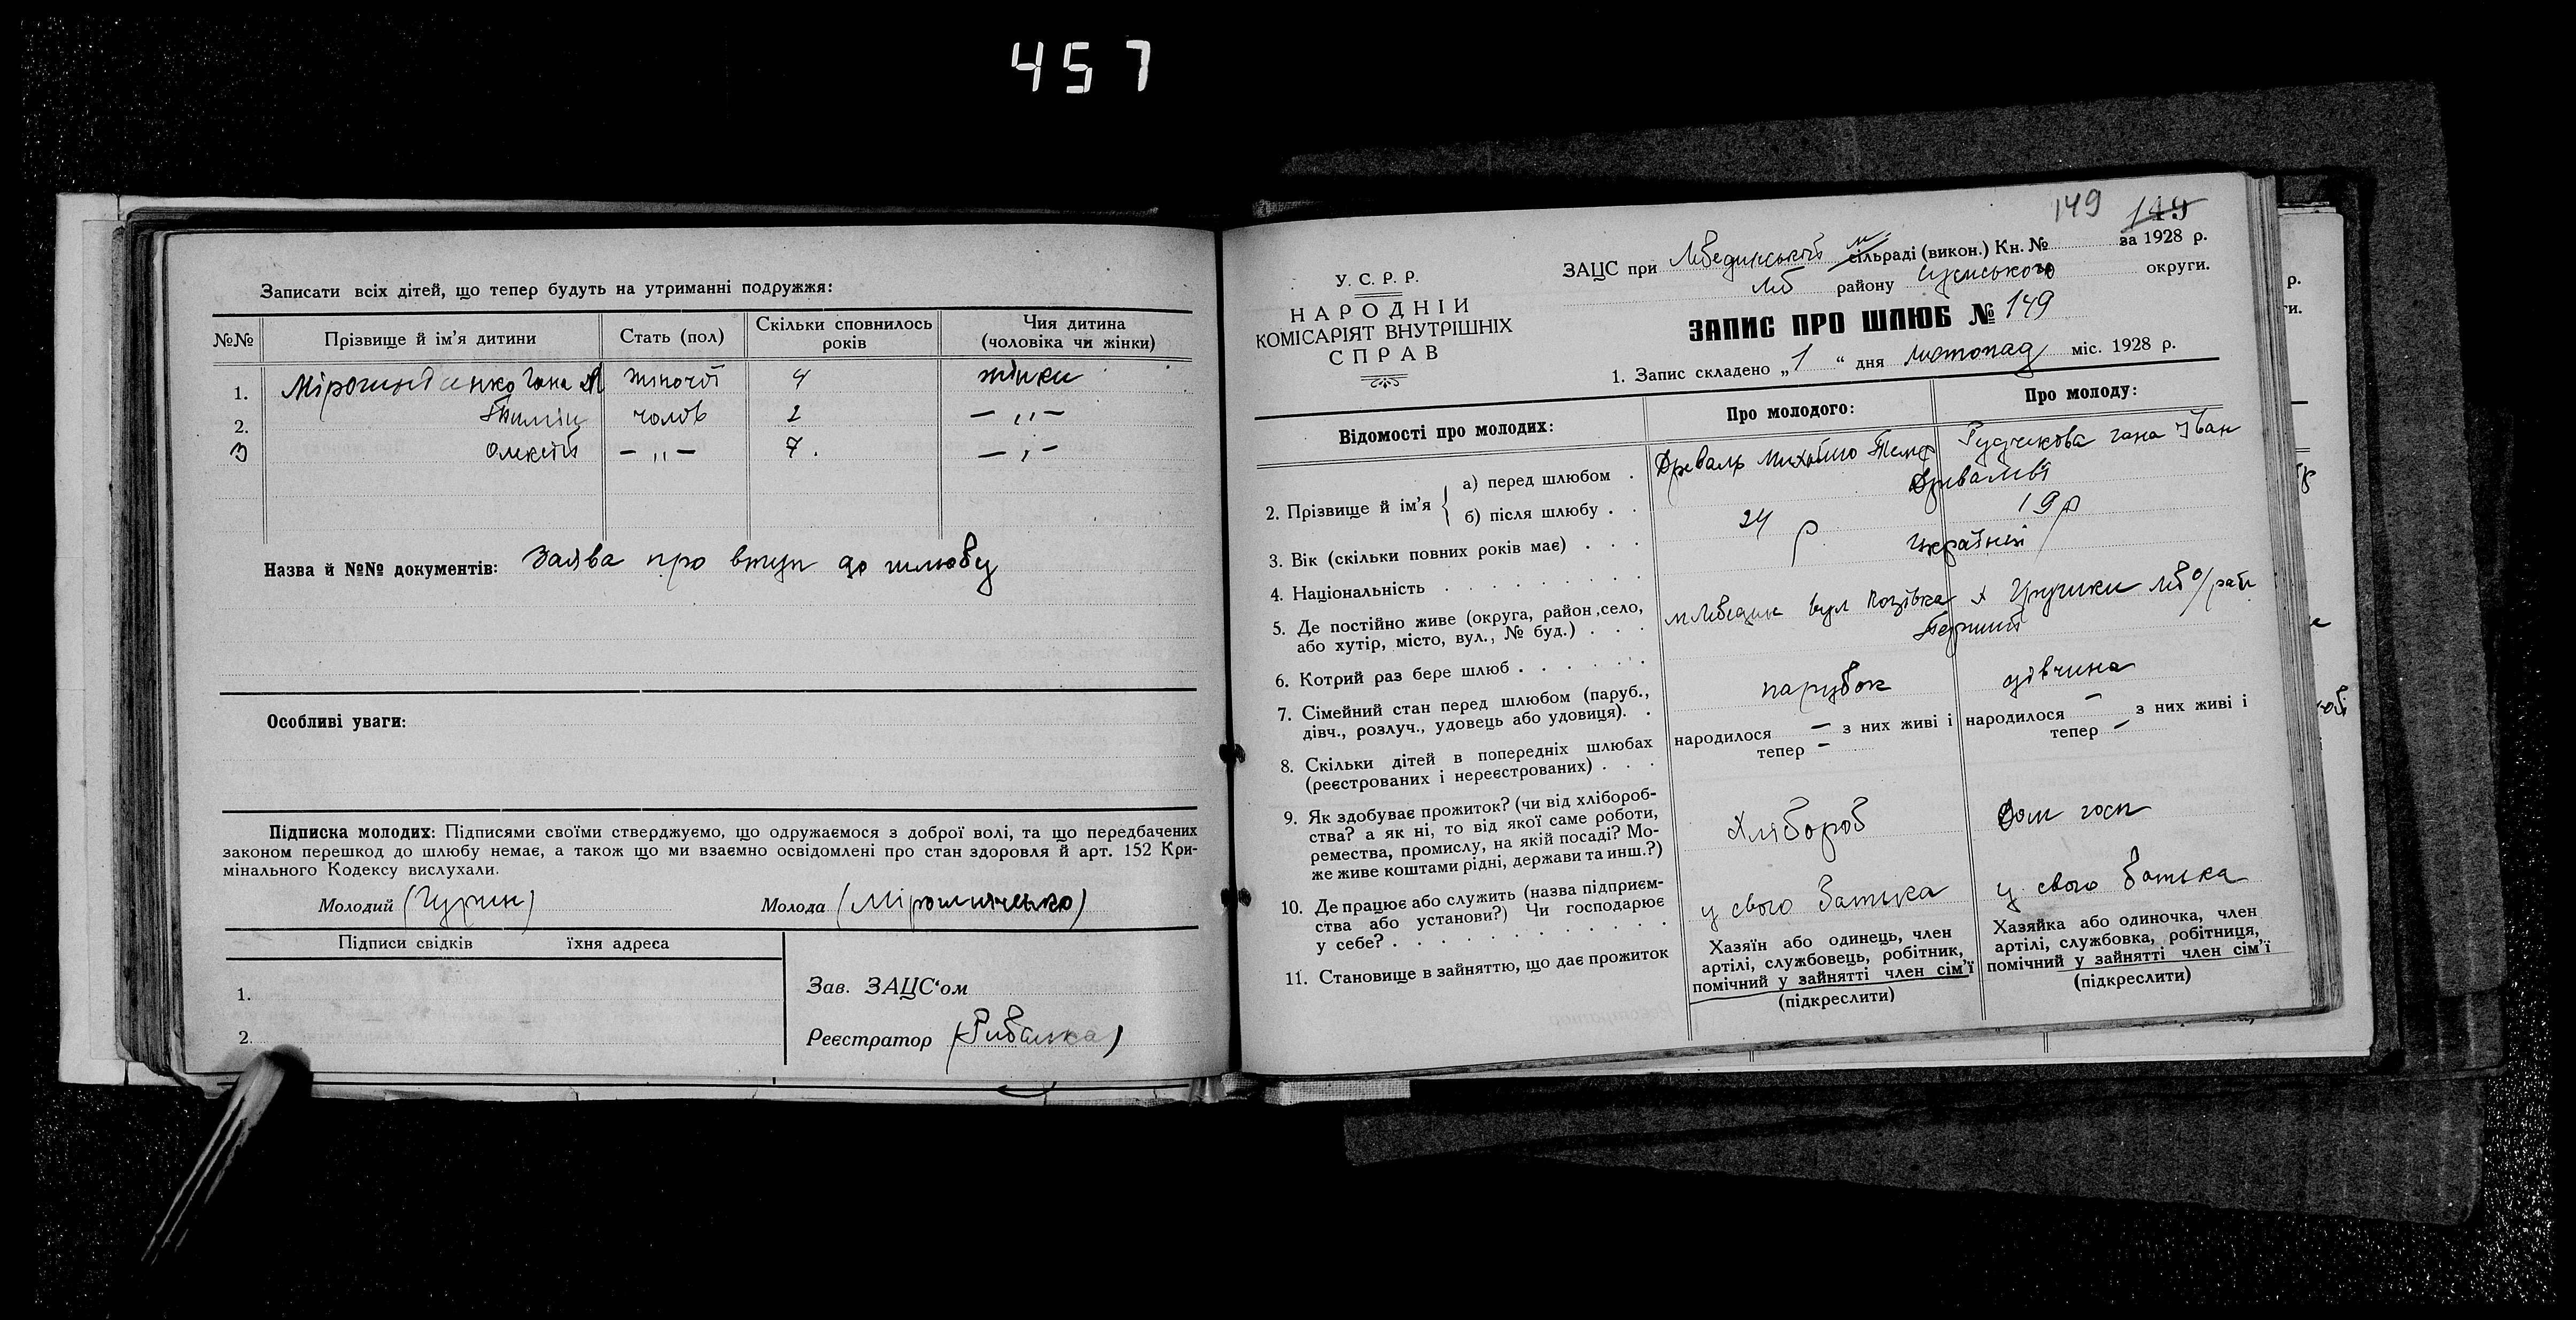 457
Записати всіх дітей, що тепер будуть на утриманні подружжя:
№№ Прізвище й ім'я дитини Стать (пол) Скільки сповнилось років Чия дитина (чоловіка чи жінки)
1. Гана жіночої 4 жінки
2. чолов 2 — „ —
3 Олексій — „ — 7. — „ —
Назва й №№ документів: Заява про вступ до шлюбу
Особливі уваги:
Підписка молодих: Підписями своїми стверджуємо, що одружаємося з доброї волі, та що передбачених
законом перешкод до шлюбу немає, а також що ми взаємно освідомлені про стан здоровля й арт. 152 Кри-
мінального Кодексу вислухали.
Молодий (Гурин) Молода (Мірошниченько)
Підписи свідків їхня адреса
1.
2.
Зав. ЗАЦС'ом
Реєстратор (Рибалка)
149 149
У. С. Р. Р.
НАРОДНІЙ
КОМІСАРІЯТ ВНУТРІШНІХ
СПРАВ
ЗАЦС при Лебединській м сільраді (викон.) Кн. № за 1928 р.
Леб району Сумського округи.
ЗАПИС ПРО ШЛЮБ № 149
1. Запис складено „ 1 “ дня листопад міс. 1928 р.
Відомості про молодих: Про молодого: Про молоду:
2. Прізвище й ім'я { а) перед шлюбом . Древаль Михайло Гана Іван
б) після шлюбу . . Древалеві
3. Вік (скільки повних років має) . . . 24 р 19 р
4. Національність . . . . . . . . Українці
5. Де постійно живе (округа, район, село,
або хутір, місто, вул., № буд.) . . . м Лебедин вул х Леб/рай
6. Котрий раз бере шлюб . . . . . . Перший
7. Сімейний стан перед шлюбом (паруб.,
дівч., розлуч., удовець або удовиця). . парубок дівчина
8. Скільки дітей в попередніх шлюбах
(реєстрованих і нереєстрованих) . . .
народилося — з них живі і
тепер —
народилося — з них живі і
тепер —
9. Як здобуває прожиток? (чи від хлібороб-
ства? а як ні, то від якої саме роботи,
ремества, промислу, на якій посаді? Мо-
же живе коштами рідні, держави та инш.?)
Хлібороб Дом госп
10. Де працює або служить (назва підприєм-
ства або установи?) Чи господарює
у себе? . . . . . . . . . . .
у свого батька у свого батька
11. Становище в зайняттю, що дає прожиток
Хазяїн або одинець, член
артілі, службовець, робітник,
помічний у зайнятті член сім'ї
(підкреслити)
Хазяйка або одиночка, член
артілі, службовка, робітниця,
помічний у зайнятті член сім'ї
(підкреслити)